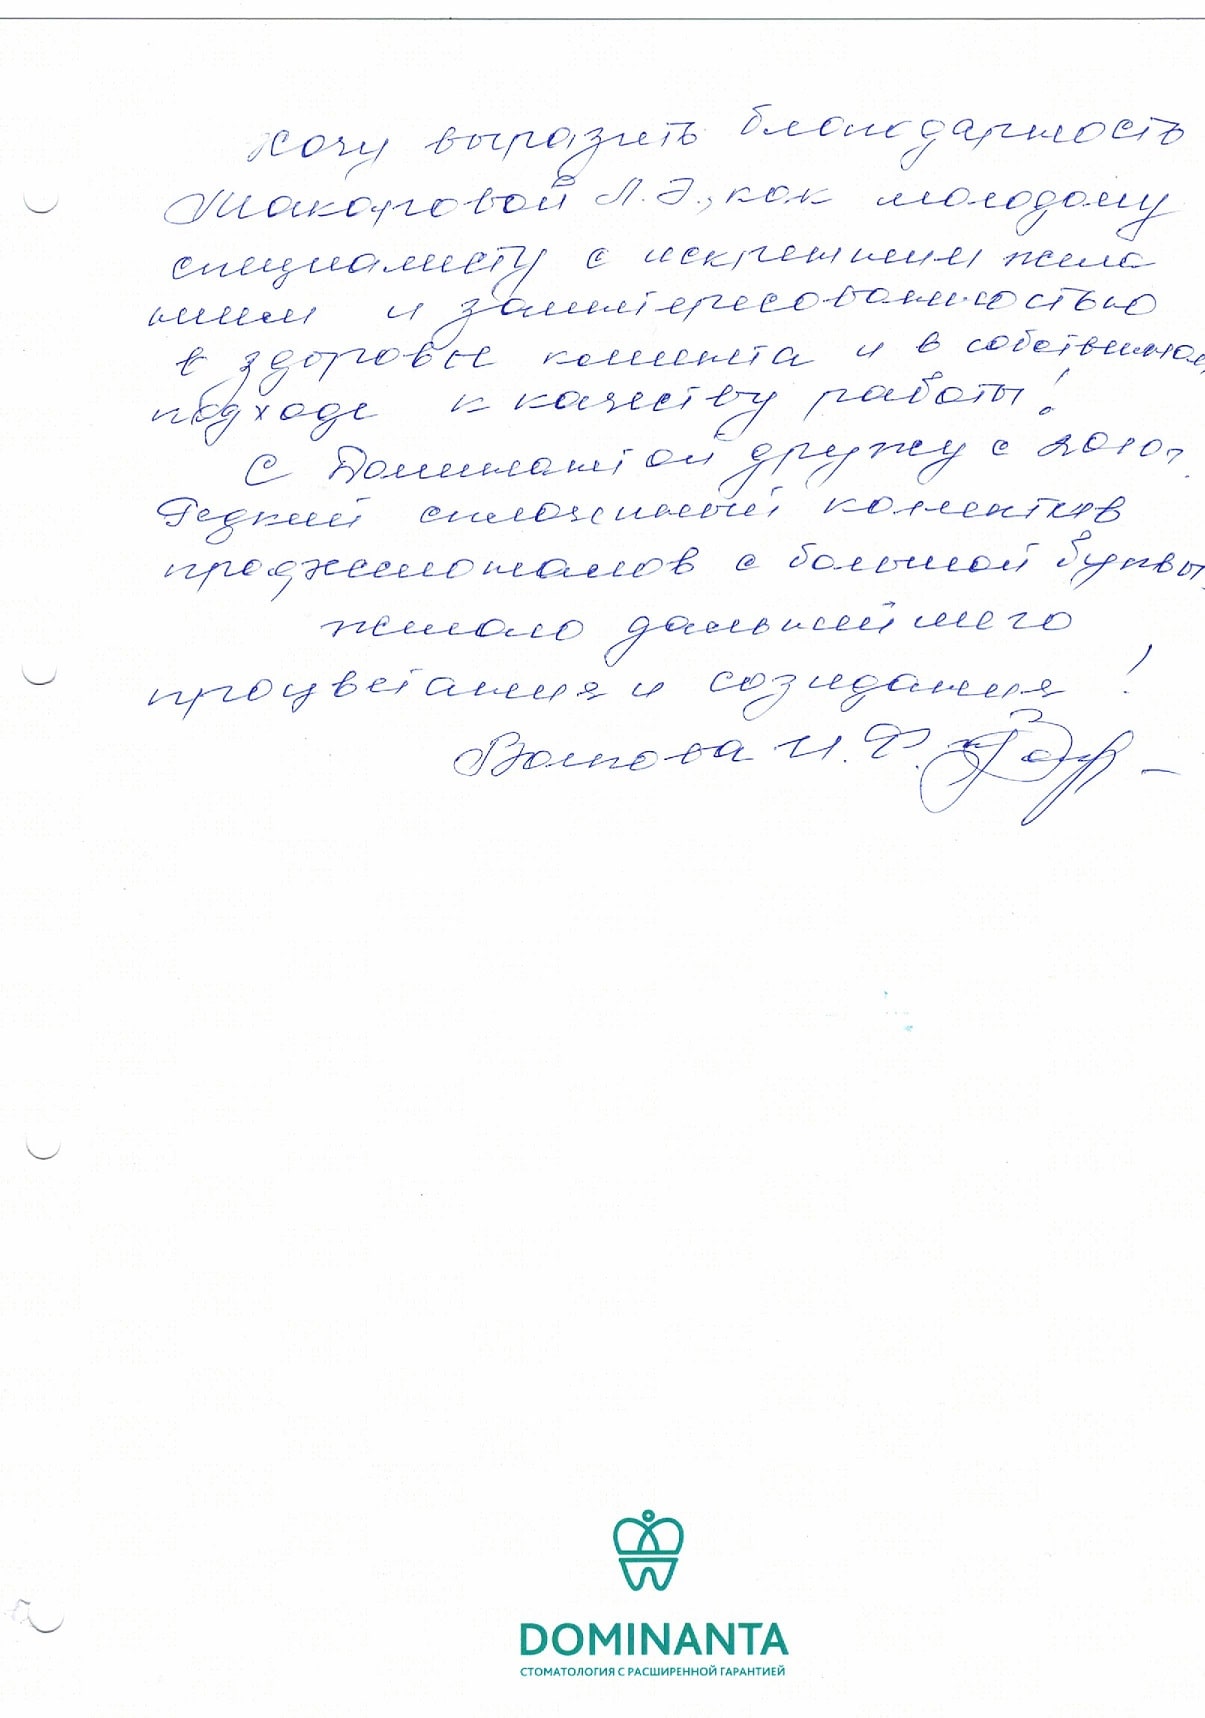 Хочу выразить благодарность
Макаровой Л.Э., как молодому
специалисту с искренним жела
нием и заинтересованностью
в здоровье клиента и в собственном
подходе к качеству работы!
С Доминантой дружу с 2010г.
Редкий сплоченный коллектив
профессионалов с большой буквы.
Желаю дальнейшего
процветания и созидания!
И.Ф.
DOMINANTA
СТОМАТОЛОГИЯ С РАСШИРЕННОЙ ГАРАНТИЕЙ